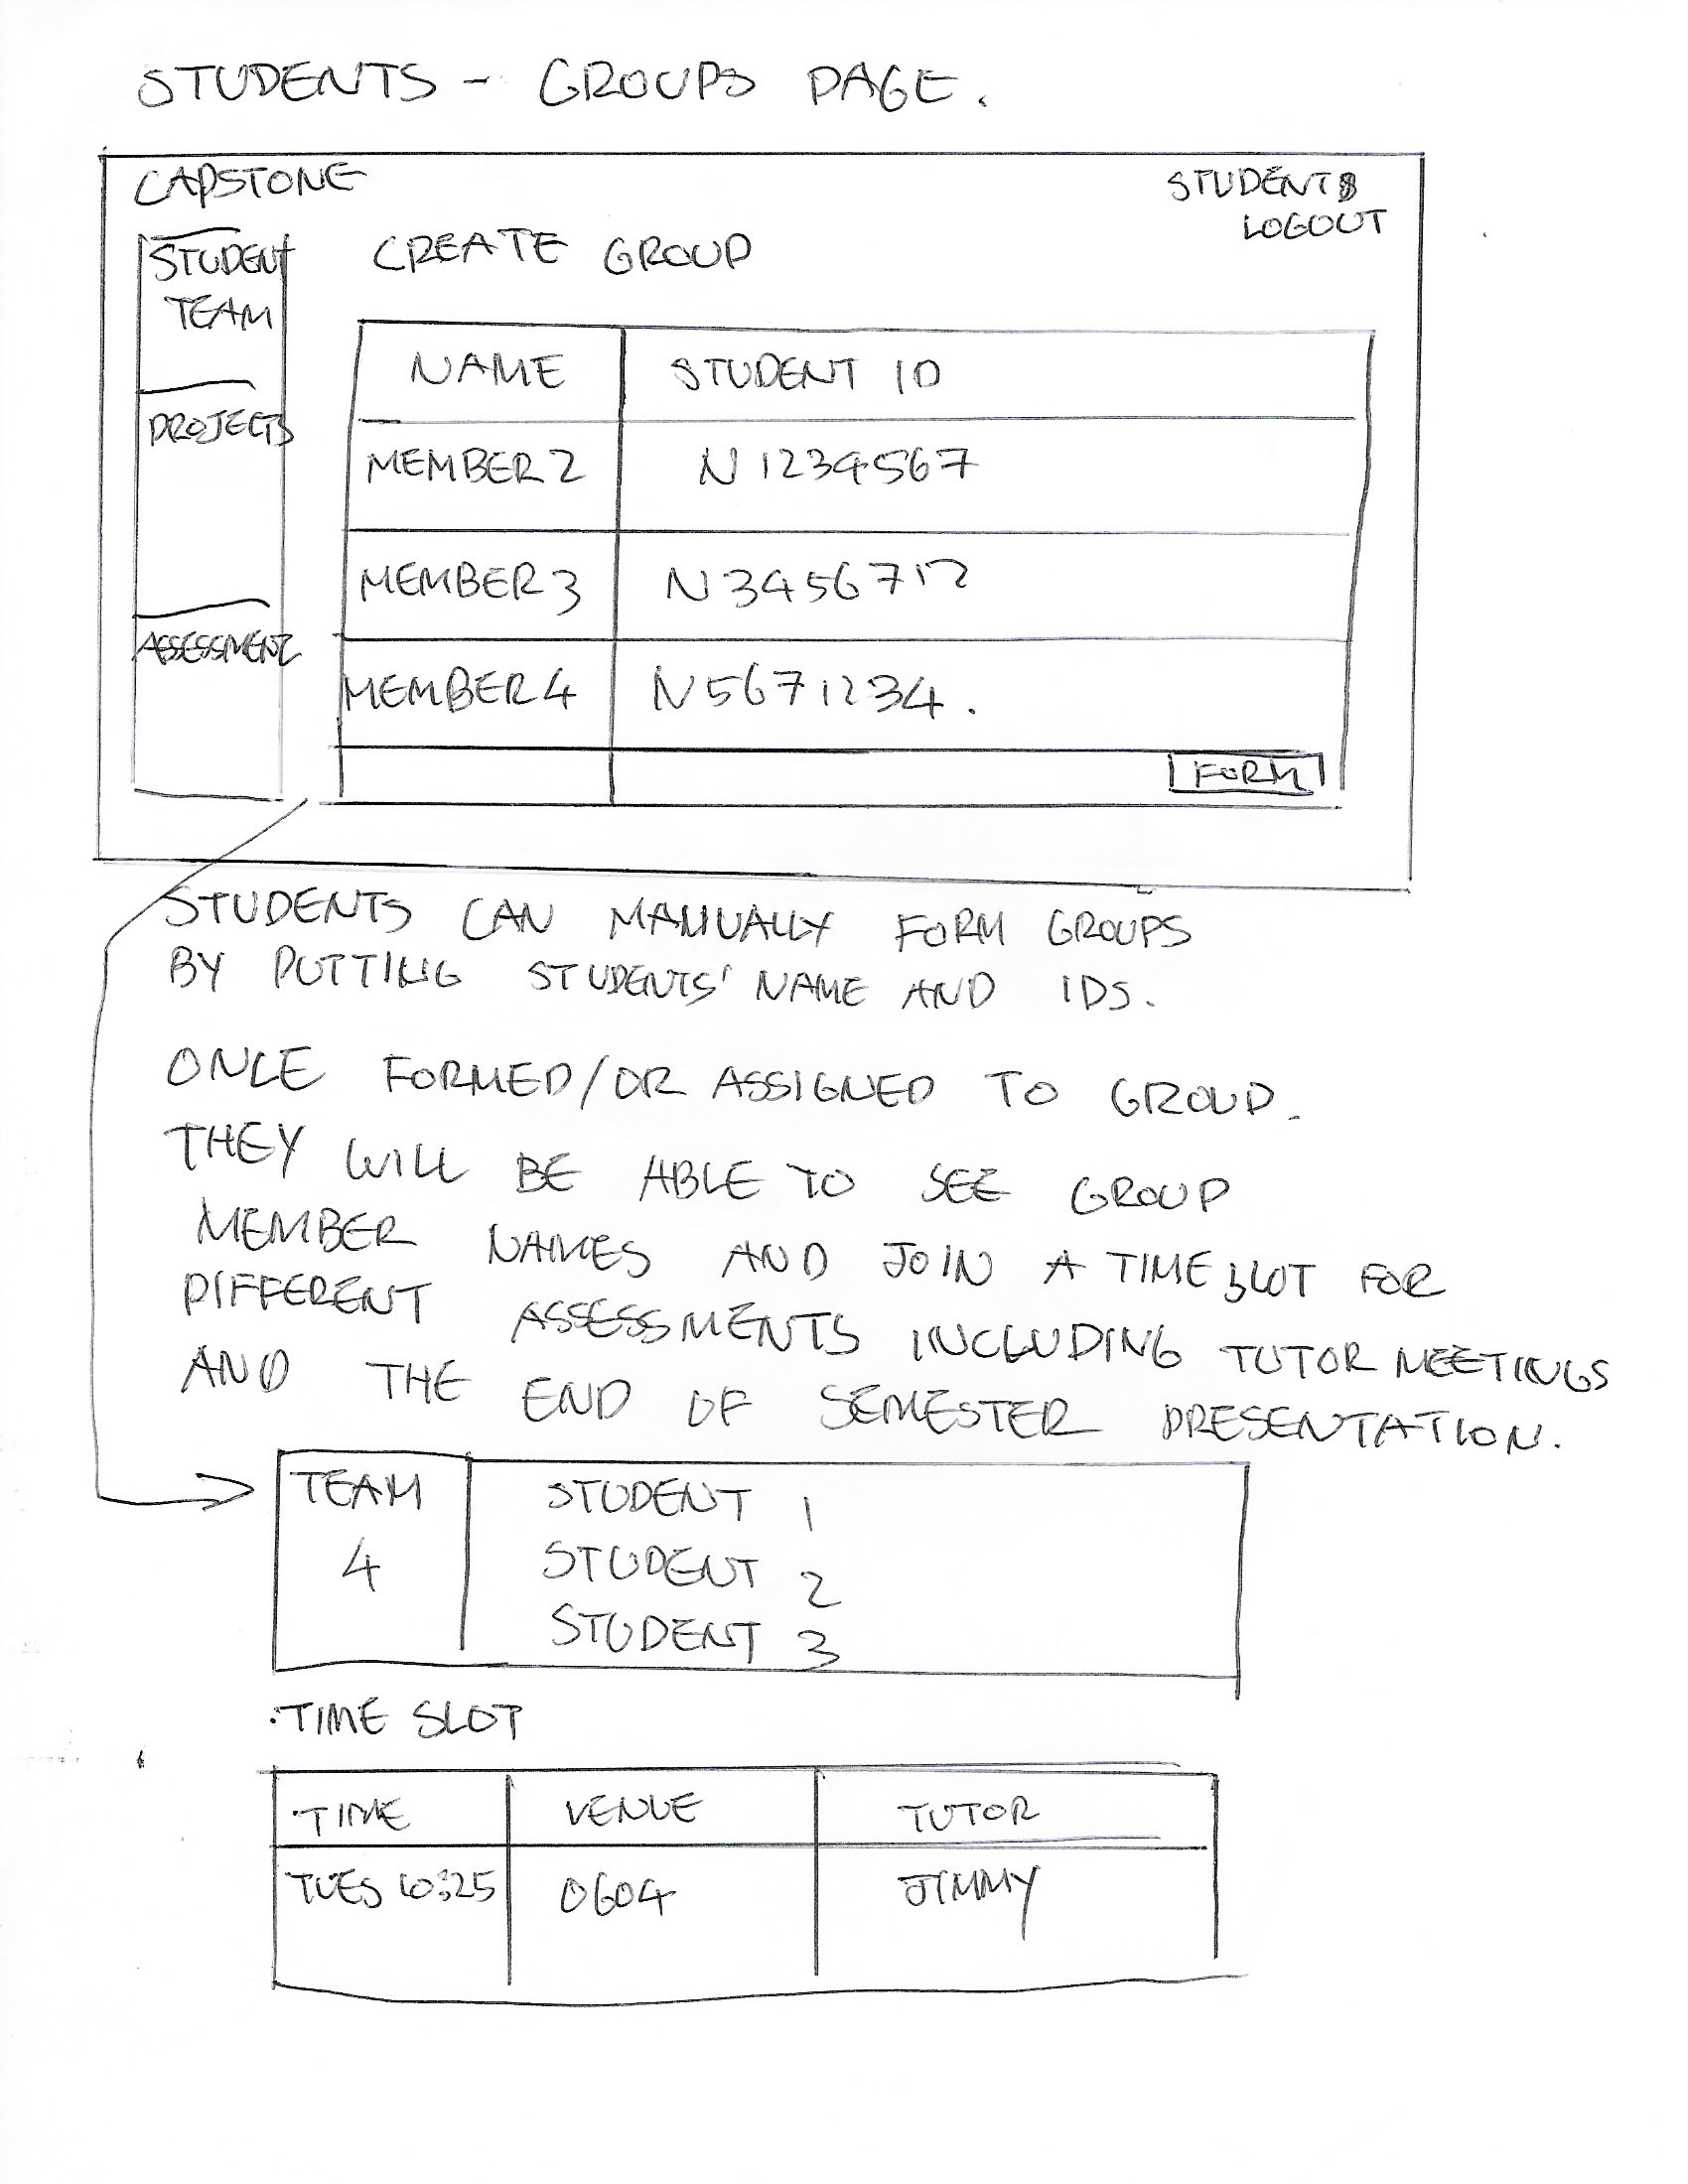 STUDENTS - GROUPS PAGE.
CAPSTONE
STUDENT
LOGOUT
STUDENT
TEAM
PROJECTS
ASSESSMENT
CREATE GROUP
NAME STUDENT ID
MEMBER 2 N1234567
MEMBER 3 N3456712
MEMBER 4 N5671234.
FORM
STUDENTS CAN MANUALLY FORM GROUPS
BY PUTTING STUDENTS' NAME AND IDS.
ONCE FORMED/OR ASSIGNED TO GROUP.
THEY WILL BE ABLE TO SEE GROUP
MEMBER NAMES AND JOIN A TIME SLOT FOR
DIFFERENT ASSESSMENTS INCLUDING TUTOR MEETINGS
AND THE END OF SEMESTER PRESENTATION.
TEAM
4
STUDENT 1
STUDENT 2
STUDENT 3
TIME SLOT
TIME VENUE TUTOR
TUES JIMMY